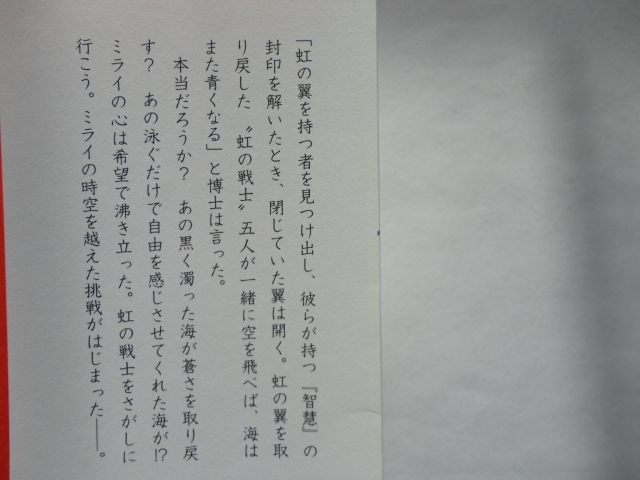 「虹の翼を持つ者を見つけ出し、彼らが持つ『智慧』の
封印を解いたとき、閉じていた翼は開く。虹の翼を取
り戻した〝虹の戦士〟五人が一緒に空を飛べば、海は
また青くなる」と博士は言った。
　本当だろうか？　あの黒く濁った海が蒼さを取り戻
す？　あの泳ぐだけで自由を感じさせてくれた海が!?
ミライの心は希望で沸き立った。虹の戦士をさがしに
行こう。ミライの時空を越えた挑戦がはじまった――。